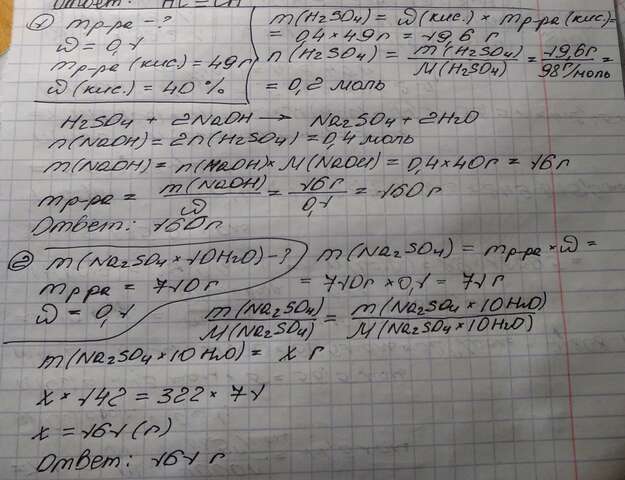 Ответ: HC ≡ CH
① mр-ра – ?
ω = 0,1
mр-ра (кис.) = 49 г
ω (кис.) = 40 %
m(H2SO4) = ω (кис.) × mр-ра (кис.) =
= 0,4 × 49 г = 19,6 г
n(H2SO4) = m(H2SO4) / M(H2SO4) = 19,6 г / 98 г/моль =
= 0,2 моль
H2SO4 + 2NaOH → Na2SO4 + 2H2O
n(NaOH) = 2n(H2SO4) = 0,4 моль
m(NaOH) = n(NaOH) × M(NaOH) = 0,4 × 40 г = 16 г
mр-ра = m(NaOH) / ω = 16 г / 0,1 = 160 г
Ответ: 160 г
② m(Na2SO4 × 10H2O) – ?
mр-ра = 710 г
ω = 0,1
m(Na2SO4) = mр-ра × ω =
= 710 г × 0,1 = 71 г
m(Na2SO4) / M(Na2SO4) = m(Na2SO4 × 10H2O) / M(Na2SO4 × 10H2O)
m(Na2SO4 × 10H2O) = x г
x × 142 = 322 × 71
x = 161 (г)
Ответ: 161 г